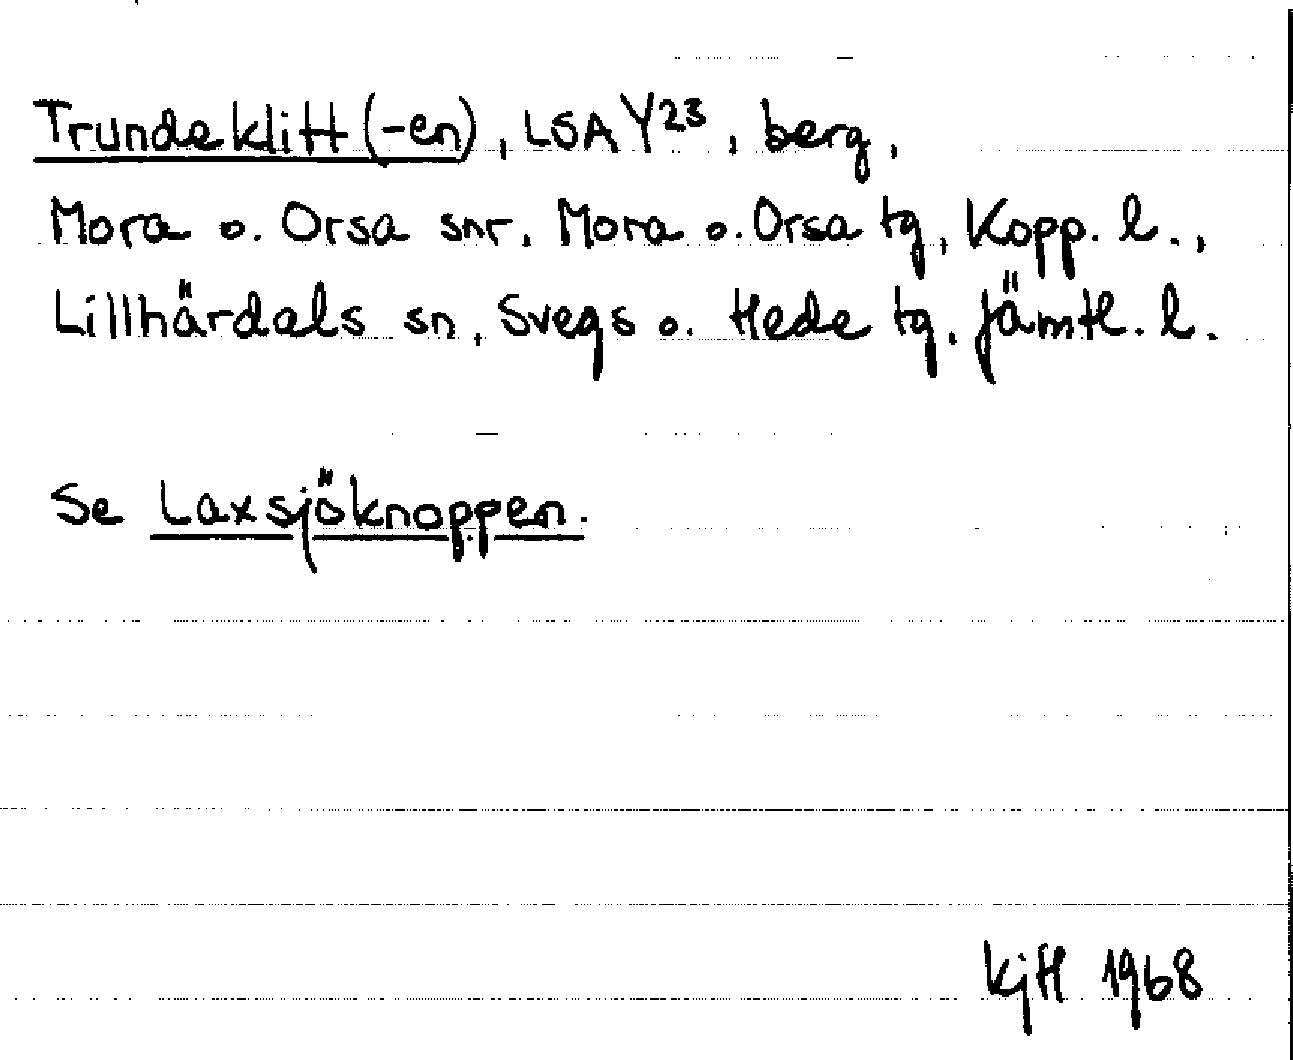 Trundeklitt (-en), LSA Y23, berg,
Mora o. Orsa snr, Mora o. Orsa tg, Kopp. l.,
Lillhärdals sn, Svegs o. Hede tg, Jämtl. l.
Se Laxsjöknoppen.
KjH 1968